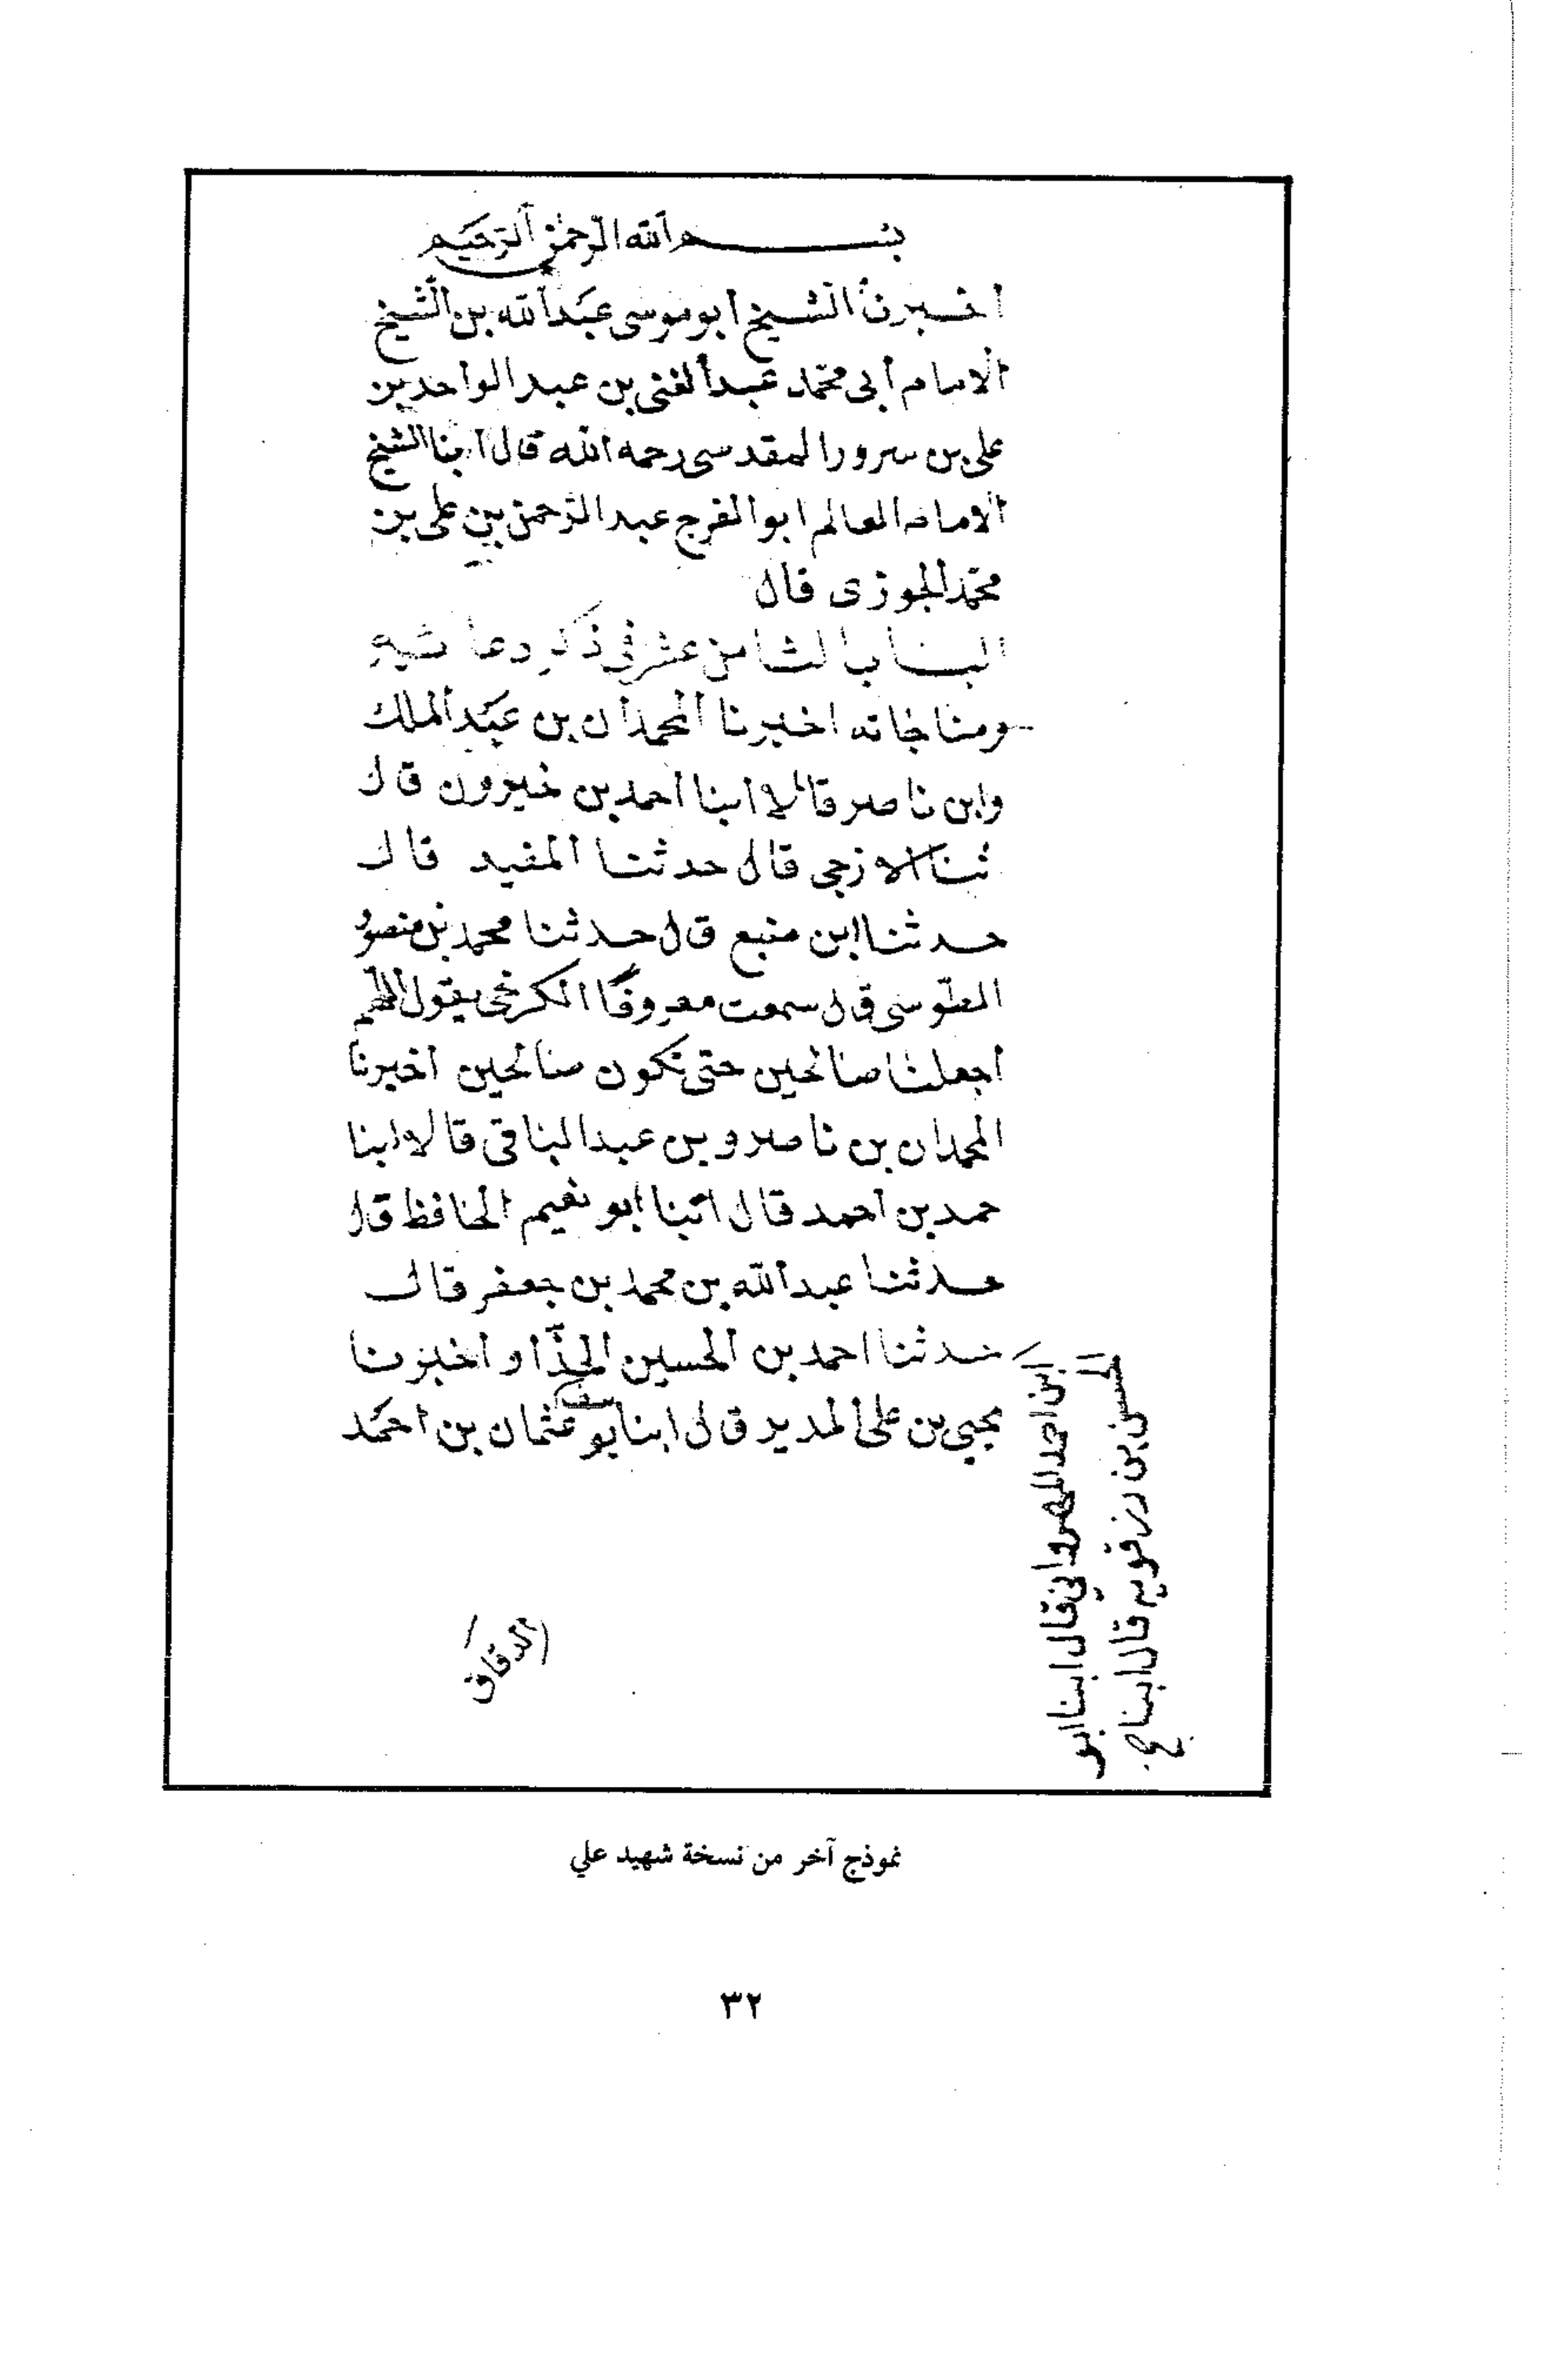 بسم الله الرحمن الرحيم
اخبرنا الشيخ ابو موسى عبد الله بن الشيخ
الامام أبي محمد عبد الغني بن عبد الواحد بن
علي بن سرور المقدسي رحمه الله قال ابنا الشيخ
الامام العالم ابو الفرج عبد الرحمن بن علي بن
محمد الجوزى قال
الباب الثامن عشر في ذكر دعا
ومناجاته اخبرنا المحمدان بن عبد الملك
وابن ناصر قالا ابنا احمد بن خيرون قال
ثنا الازجي قال حدثنا المفيد قال
حدثنا ابن منيع قال حدثنا محمد بن منصور
الطوسي قال سمعت معروفا الكرخي يقول اللهم
اجعلنا صالحين حتى نكون صالحين اخبرنا
المحمدان بن ناصر وبن عبد الباقي قالا ابنا
حمد بن احمد قال انبنا ابو نعيم الحافظ قال
حدثنا عبد الله بن محمد بن جعفر قال
حدثنا احمد بن الحسين الحذا واخبرنا
يحيى بن علي المدير قال ابنا يوسف
عثمان بن احمد
ابن احمد المهرواني قال ابنا ابو
الحسن بن رزقويه قال ابنا
الدقاق
نموذج آخر من نسخة شهيد علي
٣٢